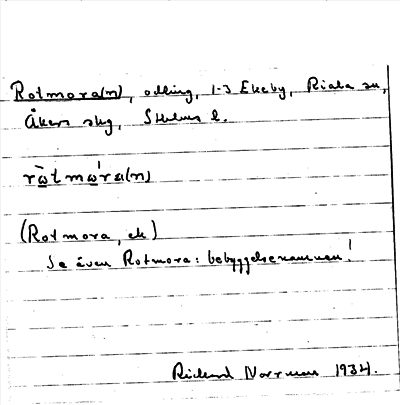 Rotmora(n), odling, 1-3 Ekeby, Riala sn,
Åkers skg, Sthlms l.
rὼtmω̍ra(n)
(Rotmora, ek)
Se även Rotmora: bebyggelsenamnen!
Rickard Norrman 1934.